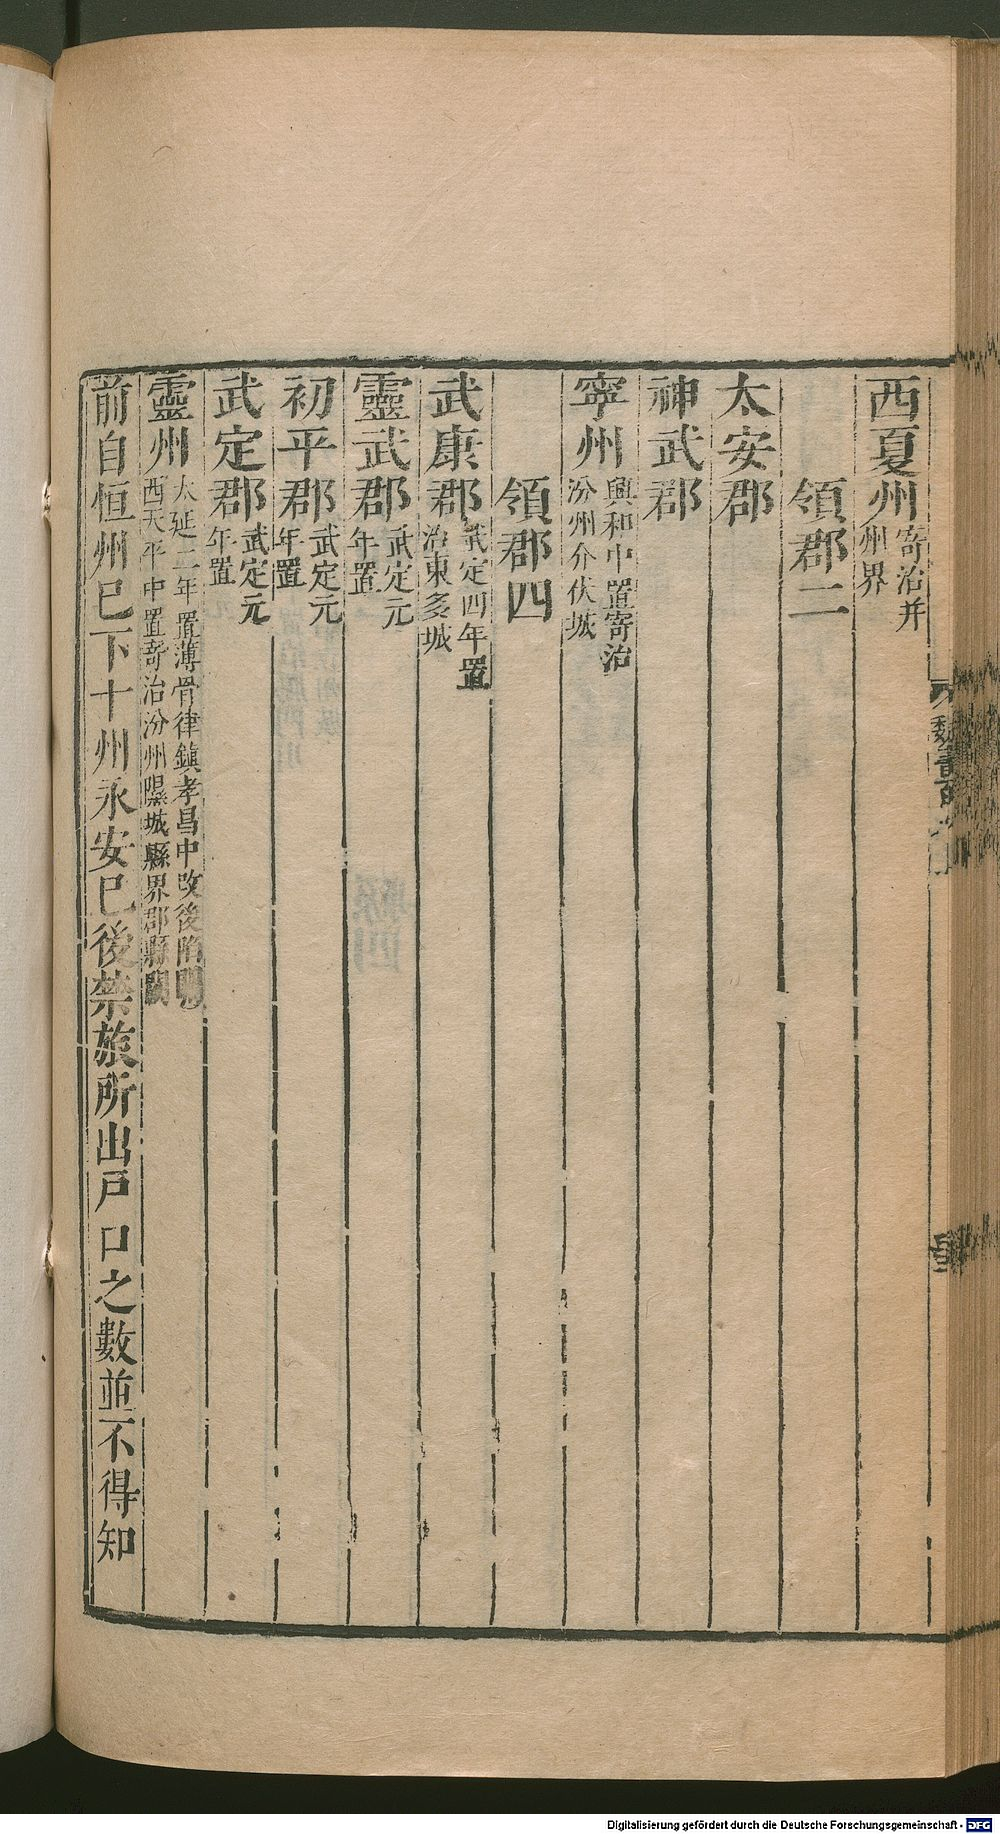 西夏州寄治并州界
領郡二
太安郡
神武郡
寧州興和中置寄治汾州介伏城
領郡四
武康郡武定四年置治東多城
靈武郡武定元年置
初平郡武定元年置
武定郡武定元年置
靈州太延二年置薄骨律鎮孝昌中改後陷關西天平中置寄治汾州隰城縣界郡縣闕
前自恒州已下十州永安已後禁旅所出戶口之數並不得知
魏書百
Digitalisierung gefördert durch die Deutsche Forschungsgemeinschaft - DFG